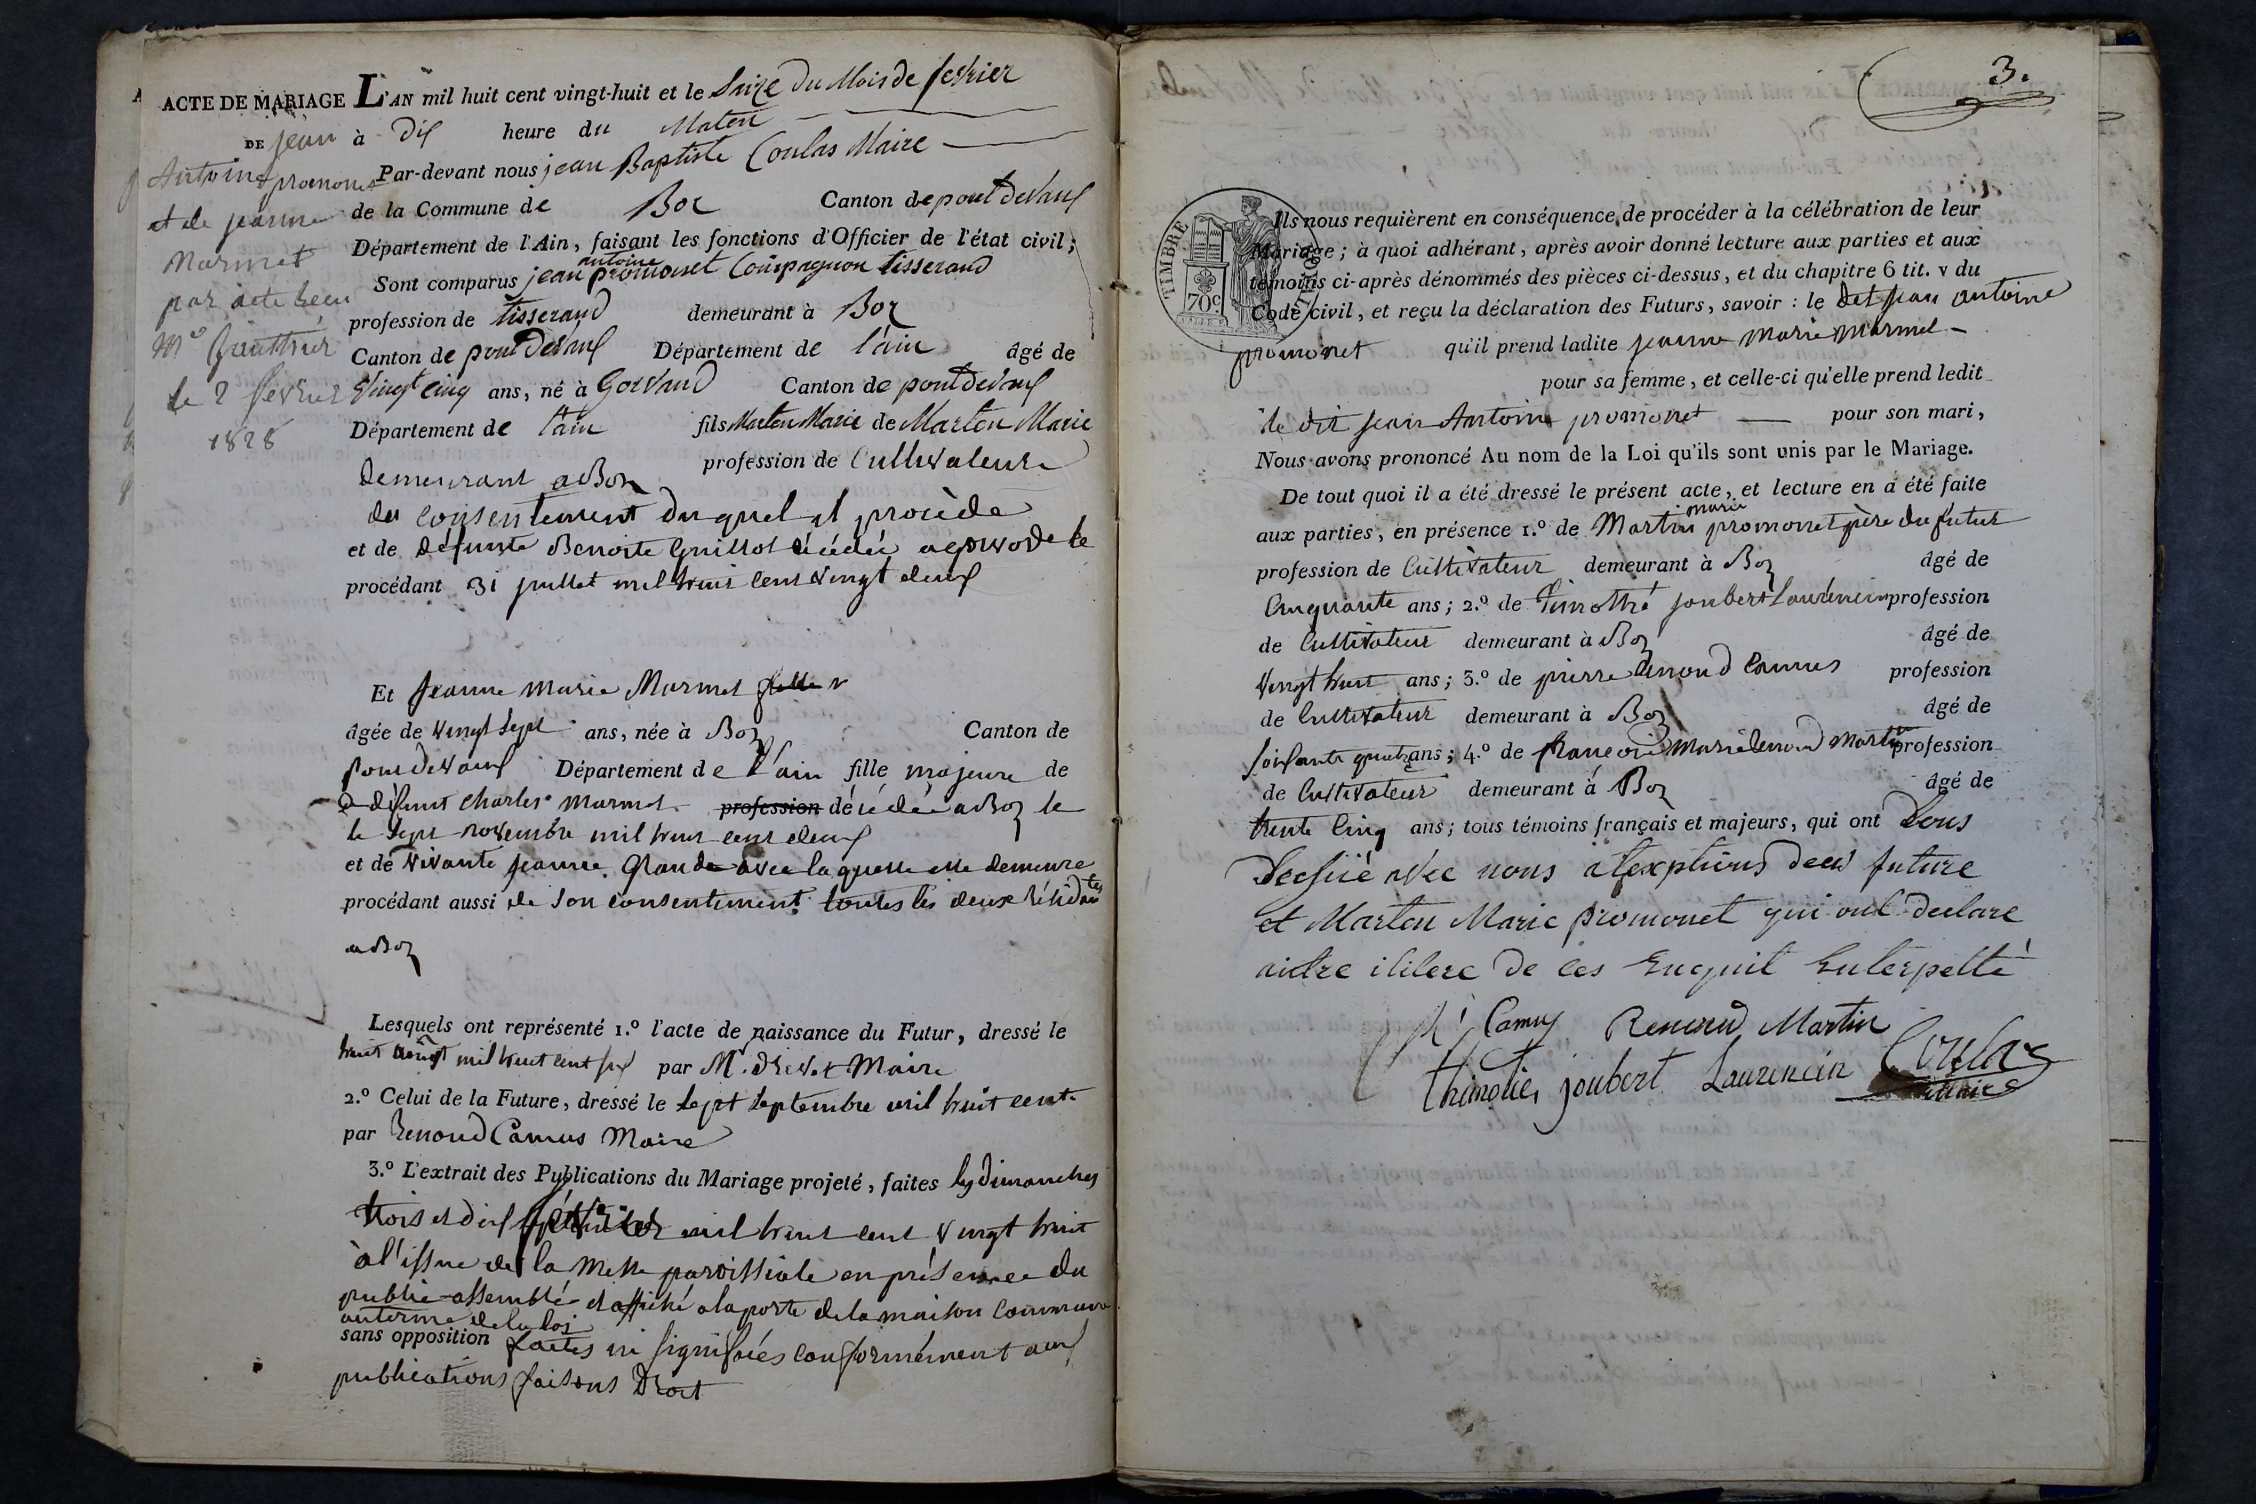 ACTE DE MARIAGE
DE jean
Antoine promonet
et de jeanne
Marmet
par acte recu
Me Gauthier
le 2 fevrier
1828
L'AN mil huit cent vingt-huit et le Seize du Mois de fevrier
à dix heure du Maten
Par-devant nous jean Baptiste Coulas Maire
de la Commune de Boz Canton de pont devaux
Département de l'Ain, faisant les fonctions d'Officier de l'état civil;
Sont comparus jean antoine promonet Compagnon tisserand
profession de tisserand demeurant à Boz
Canton de pont devaux Département de l'ain âgé de
vingt cinq ans, né à Gorvaud Canton de pont devaux
Département de l'ain fils Marten Marie de Marten Marie
profession de Cultivateure
demeurant a Boz
du consentement duquel il procède
et de défunte Benoite Guillot décédée a gorvode le
procédant 31 juillet mil huit cent vingt deux
Et jeanne marie Marmet fille
âgée de vingt sept ans, née à Boz Canton de
pont de vaux Département de l'ain fille majeure de
défunt charles marmet profession décédée a Boz le
le sept novembre mil huit cent deux
et de vivante jeanne Grande avec laquelle elle demeure
procédant aussi de son consentement toutes les deux résidantes
a Boz
Lesquels ont représenté 1.º l'acte de naissance du Futur, dressé le
huit août mil huit cent six par M. drevet Maire
2.º Celui de la Future, dressé le sept septembre mil huit cent
par Renoud Camus Maire
3.º L'extrait des Publications du Mariage projeté, faites les dimanches
trois et dix février mil huit cent vingt huit
à l'issue de la messe paroissiale en présence du
public assemblé et affiché a la porte de la maison commune
au terme de la loi
sans opposition faites ni signifiées conformément aux
publications faisons Droit
3.
TIMBRE ROYAL
70c
Ils nous requièrent en conséquence, de procéder à la célébration de leur
Mariage; à quoi adhérant, après avoir donné lecture aux parties et aux
témoins ci-après dénommés des pièces ci-dessus, et du chapitre 6 tit. v du
Code civil, et reçu la déclaration des Futurs, savoir : le dit jean antoine
promonet qu'il prend ladite jeanne marie marmet
pour sa femme, et celle-ci qu'elle prend ledit
le dit jean Antoine promonet pour son mari,
Nous avons prononcé Au nom de la Loi qu'ils sont unis par le Mariage.
De tout quoi il a été dressé le présent acte, et lecture en a été faite
aux parties, en présence 1.º de Martin marie promonet père du futur
profession de Cultivateur demeurant à Boz âgé de
Cinquante ans; 2.º de Timothé joubert Laurencin profession
de Cultivateur demeurant à Boz âgé de
vingt huit ans; 3.º de pierre Renoud Camus profession
de Cultivateur demeurant à Boz âgé de
soixante quatre ans; 4.º de francois marie Renoud Martin profession
de Cultivateur demeurant à Boz âgé de
trente Cinq ans; tous témoins français et majeurs, qui ont Sous
avec nous a future
et Marten Marie promonet qui ont declare
de ces Enquit Enterpellé
Camus Renoud Martin
thimotié, joubert Laurencin Coulas
Maire